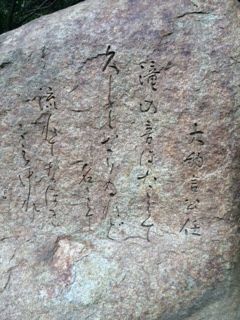 大納言公任
瀧の音はたえて
久しくなりぬれど
名こそ
流れてなほ
きこえけれ